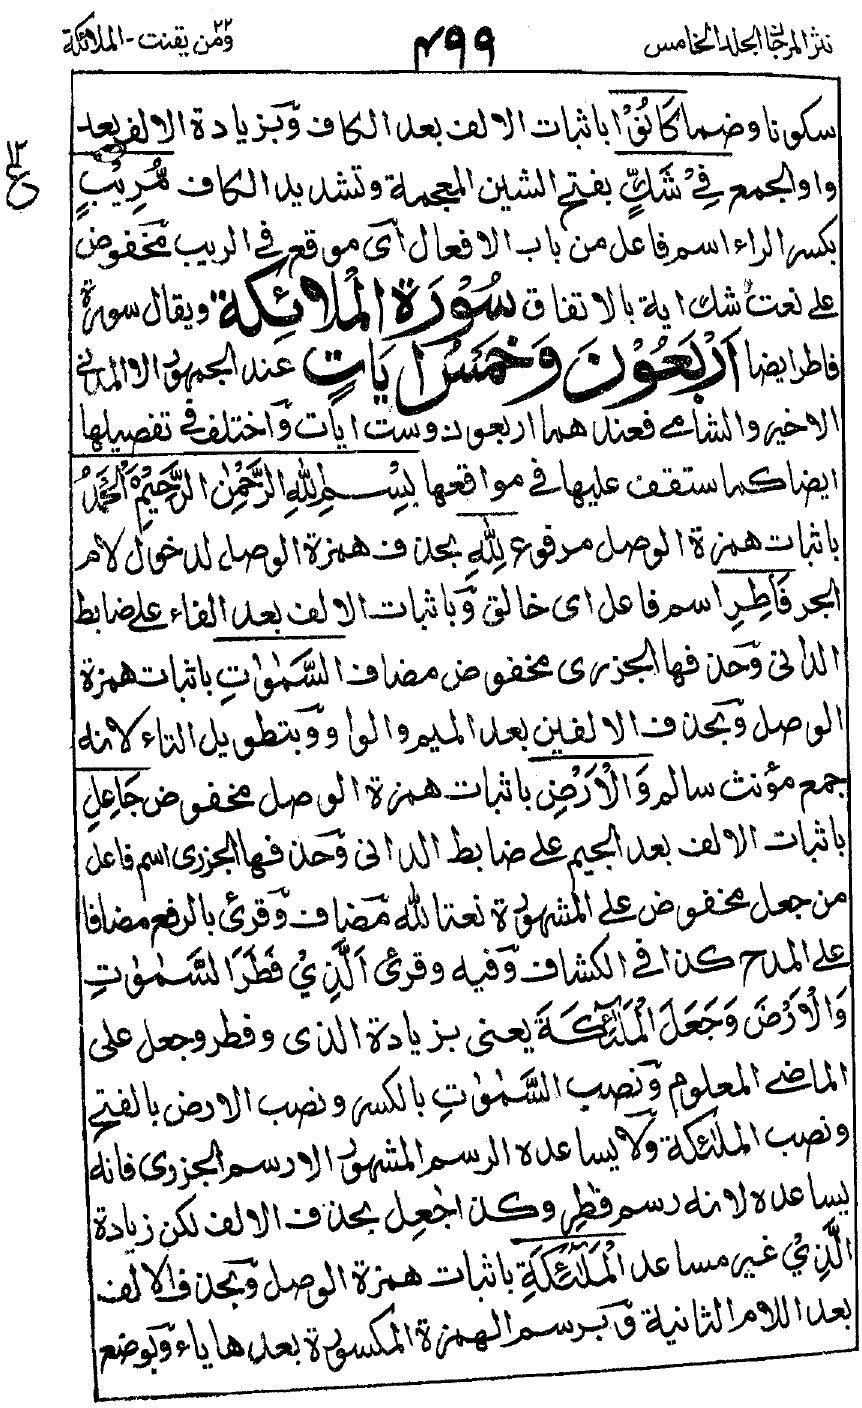 نثر المرجان الجلد الخامس
٤٩٩
ومن يقنت ٢٢ - الملائكة
١٢
ع
سكونا وضما كَانُوْا باثبات الالف بعد الكاف وبزيادة الالف بعد
واو الجمع فِيْ شَكٍّ بفتح الشين المعجمة وتشديد الكاف مُّرِيْبٍ
بكسر الراء اسم فاعل من باب الافعال أى موقع فى الريب مخفوض
على نعت شك اية بالاتفاق سُوْرَةُ الْمَلَائِكَةِ ويقال سورة
فاطر ايضا اَرْبَعُوْنَ وَخَمْسُ اٰيَاتٍ عند الجمهور الا المدنى
الاخير والشامى فعندهما اربعون وست ايات واختلف فى تفصيلها
ايضا كما ستقف عليها فى مواقعها بِسْمِ اللهِ الرَّحْمٰنِ الرَّحِيْمِ اَلْحَمْدُ
باثبات همزة الوصل مرفوع لِلّٰهِ بحذف همزة الوصل لدخول لام
الجر فَاطِرِ اسم فاعل اى خالق وباثبات الالف بعد الفاء على ضابط
الدانى وحذفها الجزرى مخفوض مضاف السَّمٰوٰتِ باثبات همزة
الوصل وبحذف الالفين بعد الميم والواو وبتطويل التاء لانه
جمع مؤنث سالم وَالْاَرْضِ باثبات همزة الوصل مخفوض جَاعِلِ
باثبات الالف بعد الجيم على ضابط الدانى وحذفها الجزرى اسم فاعل
من جعل مخفوض على المشهورة نعتا لله مضاف وقرئ بالرفع مضافا
على المدح كذا فى الكشاف وفيه وقرئ اَلَّذِيْ فَطَرَ السَّمٰوٰتِ
وَالْاَرْضَ وَجَعَلَ الْمَلٰٓئِكَةَ يعنى بزيادة الذى وفطر وجعل على
الماضى المعلوم ونصب السَّمٰوٰتِ بالكسر ونصب الارض بالفتح
ونصب الملٰئكة ولا يساعده الرسم المشهور الا رسم الجزرى فانه
يساعده لانه رسم فٰطِر وكذا جٰعِل بحذف الالف لكن زيادة
الَّذِيْ غير مساعد الْمَلٰٓئِكَةِ باثبات همزة الوصل وبحذف الالف
بعد اللام الثانية وبرسم الهمزة المكسورة بعدها ياء وبوضع